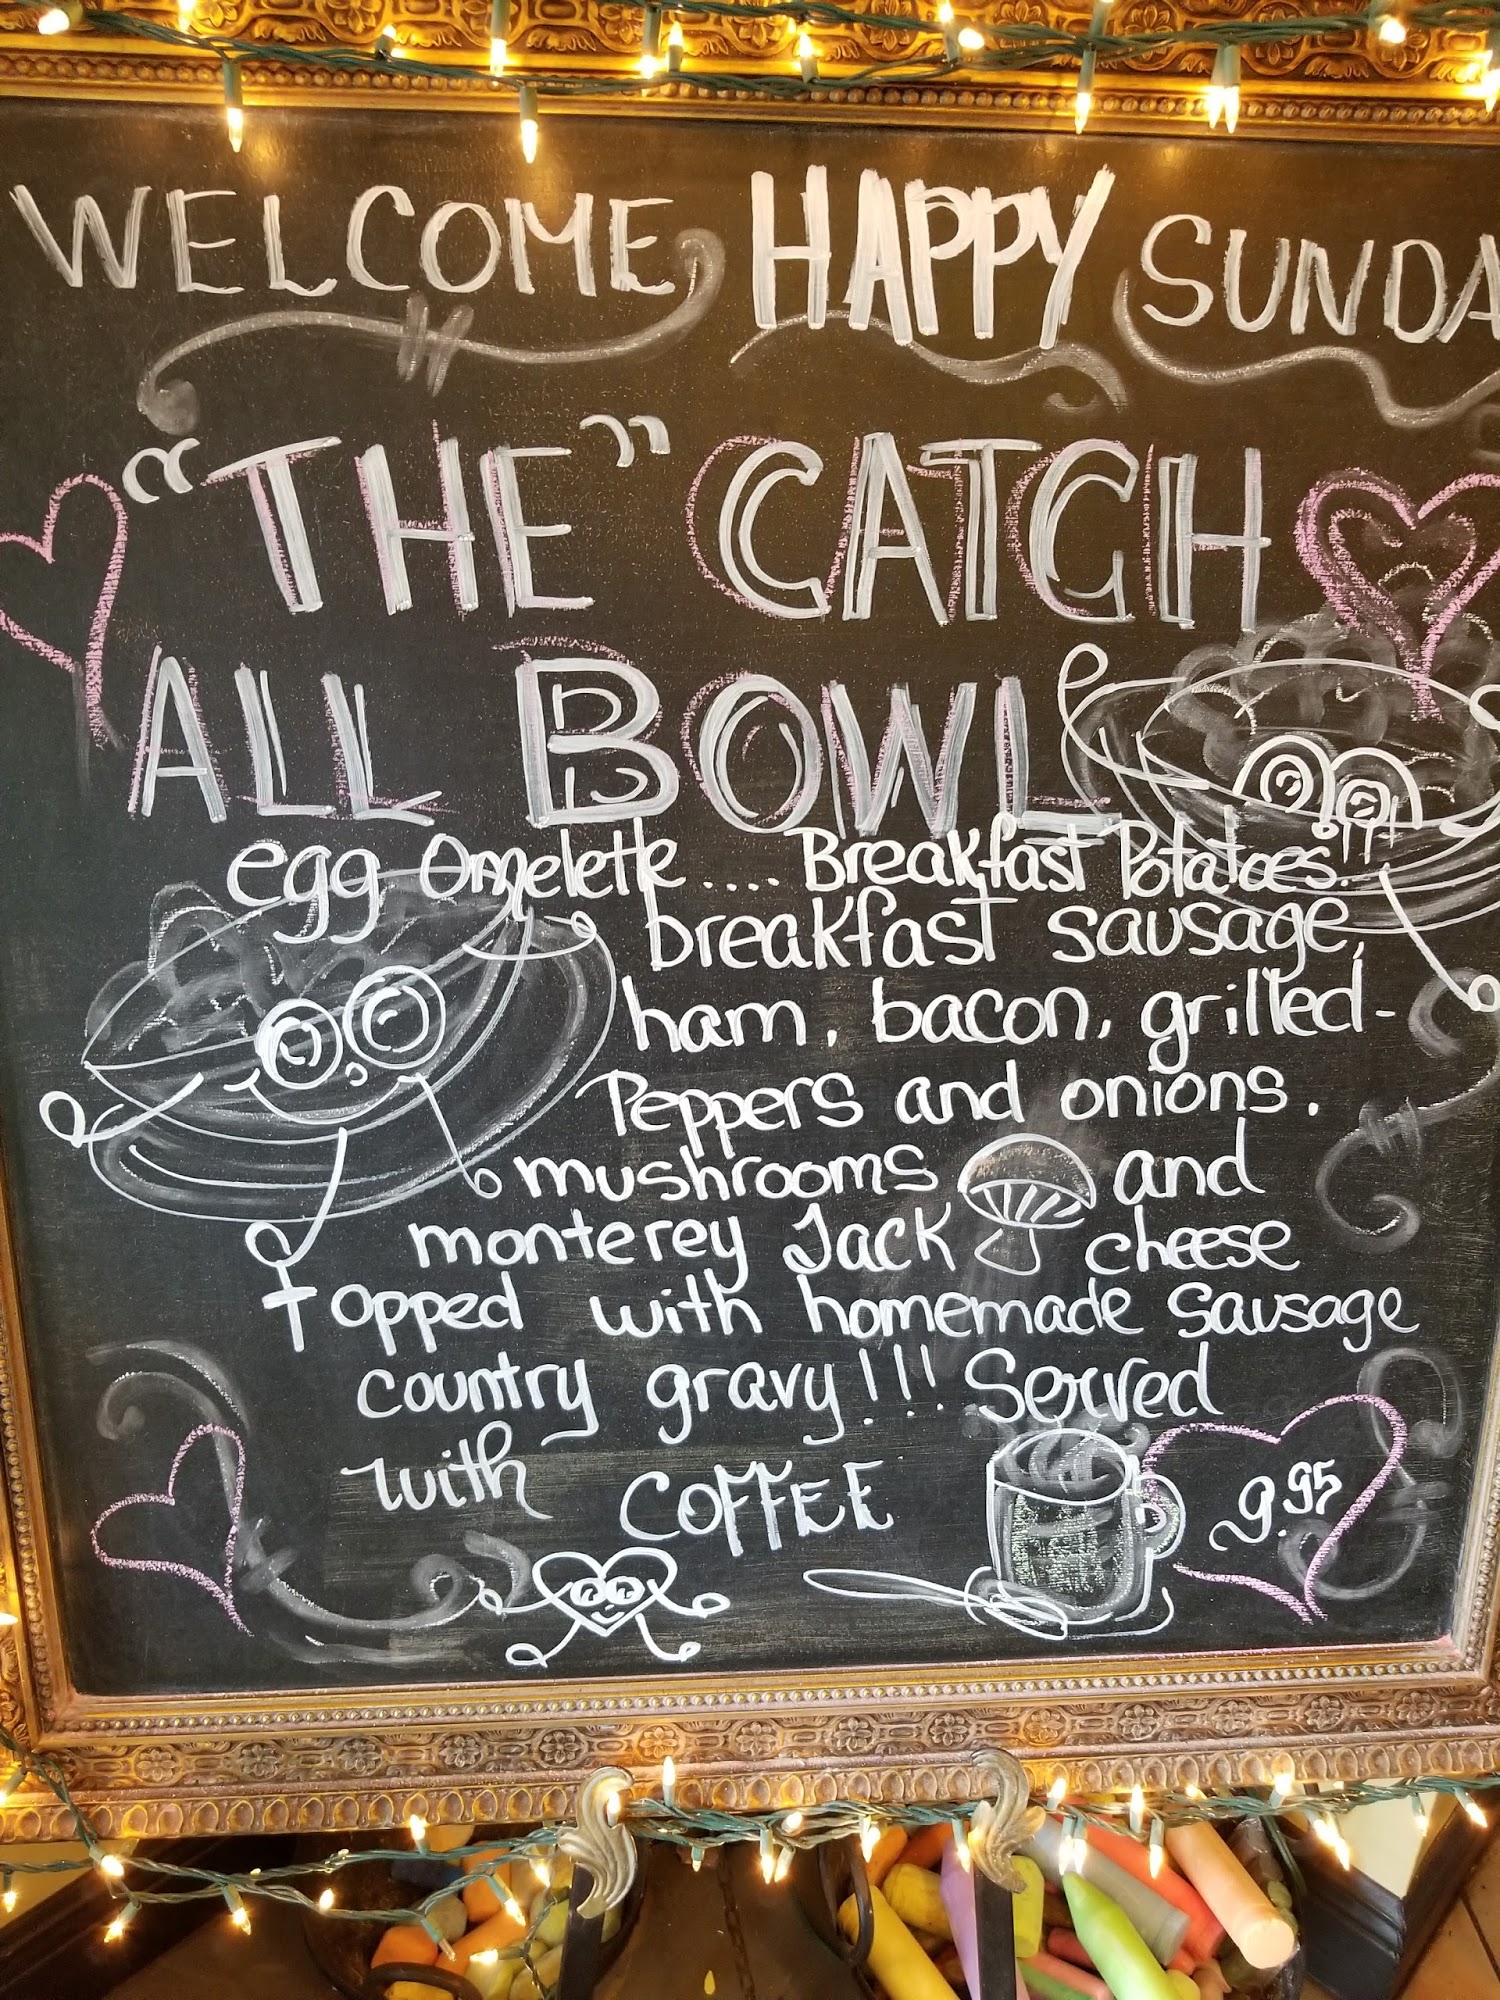 WELCOME HAPPY SUNDA
"THE" CATCH
ALL BOWL
egg Omelette .... Breakfast Potatoes!!!
breakfast sausage,
ham, bacon, grilled-
Peppers and onions.
mushrooms and
monterey Jack cheese
Topped with homemade sausage
country gravy!!! Served
with COFFEE 9.95